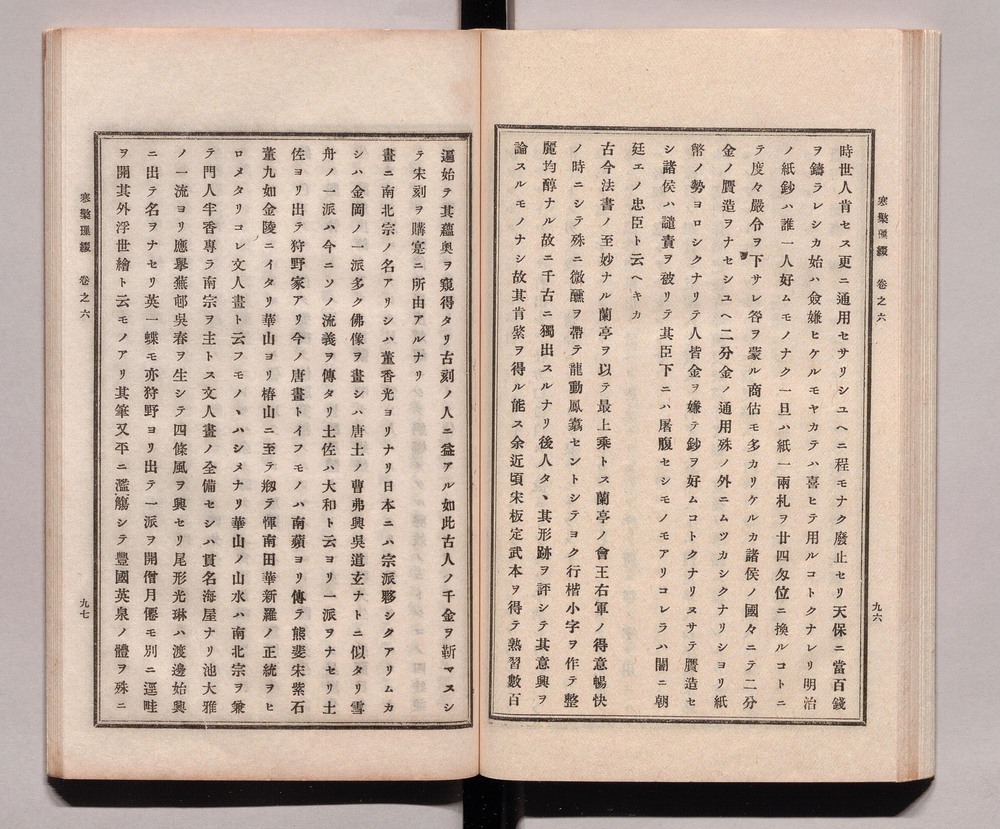 寒檠璅綴　卷之六
九六
時世人肯セス更ニ通用セサリシユヘニ程モナク廢止セリ天保ニ當百錢
ヲ鑄ラレシカ始ハ僉嫌ヒケルモヤカテハ喜ヒテ用ルコトクナレリ明治
ノ紙鈔ハ誰一人好ムモノナク一旦ハ紙一兩札ヲ廿四匁位ニ換ルコトニ
テ度々嚴令ヲ下サレ咎ヲ蒙ル商估モ多カリケルカ諸侯ノ國々ニテ二分
金ノ贋造ヲナセシユヘ二分金ノ通用殊ノ外ニムツカシクナリシヨリ紙
幣ノ勢ヨロシクナリテ人皆金ヲ嫌テ鈔ヲ好ムコトクナリヌサテ贋造セ
シ諸侯ハ譴責ヲ被リテ其臣下ニハ屠腹セシモノモアリコレラハ闇ニ朝
廷エノ忠臣ト云ヘキカ
古今法書ノ至妙ナル蘭亭ヲ以テ最上乘トス蘭亭ノ會王右軍ノ得意暢快
ノ時ニシテ殊ニ微醺ヲ帶テ龍動鳳翥セントシテヨク行楷小字ヲ作テ整
麗均醇ナル故ニ千古ニ獨出スルナリ後人タヽ其形跡ヲ評シテ其意興ヲ
論スルモノナシ故其肯綮ヲ得ル能ス余近頃宋板定武本ヲ得テ熟習數百
遍始テ其蘊奥ヲ窺得タリ古刻ノ人ニ益アル如此古人ノ千金ヲ靳マスシ
テ宋刻ヲ購寔ニ所由アルナリ
畫ニ南北宗ノ名アリシハ董香光ヨリナリ日本ニハ宗派夥シクアリムカ
シハ金岡ノ一派多ク佛像ヲ畫シハ唐土ノ曹弗興吳道玄ナトニ似タリ雪
舟ノ一派ハ今ニソノ流義ヲ傳タリ土佐ハ大和ト云ヨリ一派ヲナセリ土
佐ヨリ出テ狩野家アリ今ノ唐畫トイフモノハ南蘋ヨリ傳テ熊斐宋紫石
董九如金陵ニイタリ華山ヨリ椿山ニ至テ剏テ惲南田華新羅ノ正統ヲヒ
ロメタリコレ文人畫ト云フモノヽハシメナリ華山ノ山水ハ南北宗ヲ兼
テ門人半香專ラ南宗ヲ主トス文人畫ノ全備セシハ貫名海屋ナリ池大雅
ノ一流ヨリ應擧蕪邨吳春ヲ生シテ四條風ヲ興セリ尾形光琳ハ渡邊始興
ニ出テ名ヲナセリ英一蝶モ亦狩野ヨリ出テ一派ヲ開僧月僊モ別ニ逕畦
ヲ開其外浮世繪ト云モノアリ其筆又平ニ濫觴シテ豐國英泉ノ體ヲ殊ニ
寒檠璅綴　卷之六
九七